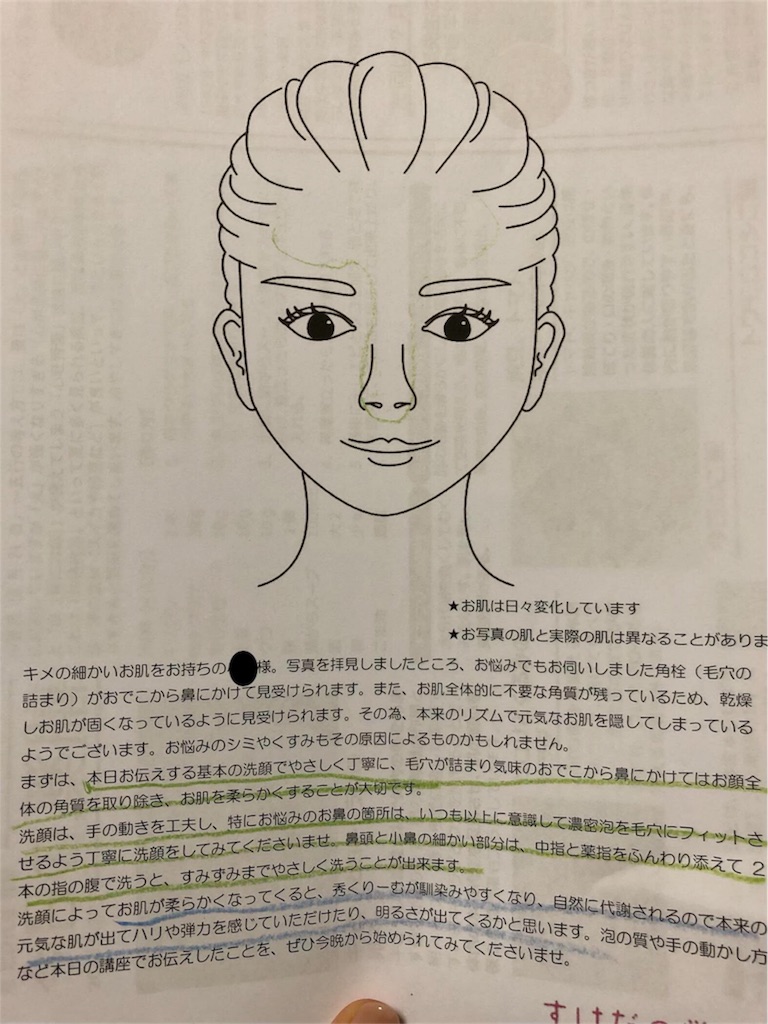 ★お肌は日々変化しています
★お写真の肌と実際の肌は異なることがありま
キメの細かいお肌をお持ちの 様。写真を拝見しましたところ、お悩みでもお伺いしました角栓（毛穴の
詰まり）がおでこから鼻にかけて見受けられます。また、お肌全体的に不要な角質が残っているため、乾燥
しお肌が固くなっているように見受けられます。その為、本来のリズムで元気なお肌を隠してしまっている
ようでございます。お悩みのシミやくすみもその原因によるものかもしれません。
まずは、本日お伝えする基本の洗顔でやさしく丁寧に、毛穴が詰まり気味のおでこから鼻にかけてはお顔全
体の角質を取り除き、お肌を柔らかくすることが大切です。
洗顔は、手の動きを工夫し、特にお悩みのお鼻の箇所は、いつも以上に意識して濃密泡を毛穴にフィットさ
せるよう丁寧に洗顔をしてみてくださいませ。鼻頭と小鼻の細かい部分は、中指と薬指をふんわり添えて２
本の指の腹で洗うと、すみずみまでやさしく洗うことが出来ます。
洗顔によってお肌が柔らかくなってくると、秀くりーむが馴染みやすくなり、自然に代謝されるので本来の
元気な肌が出てハリや弾力を感じていただけたり、明るさが出てくるかと思います。泡の質や手の動かし方
など本日の講座でお伝えしたことを、ぜひ今晩から始められてみてくださいませ。